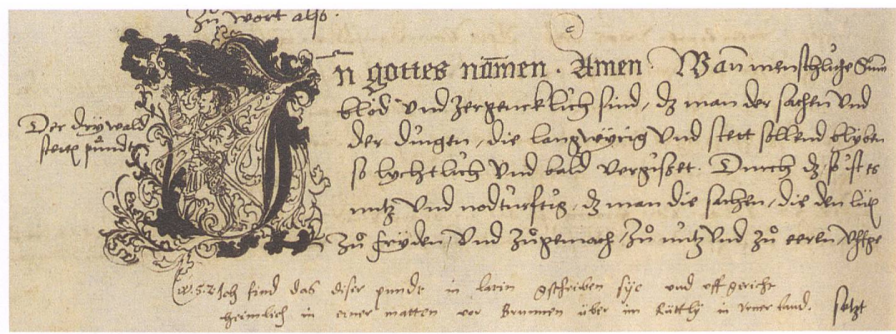 zů wort also.
Der dry wald
stetten pundt
In gottes nammen. Amen. Wann menschliche Sinn
blöd und zergencklich sind, dz man der sachen und
der dingen, die langwyrig und stett sollend blyben
so lychtlich und bald vergisset. Durch dz so ist es
nütz und nodturftig, dz man die sachen, die den lüten
zů fryden, und zů gemach, zů nütz und zů eeren
Ich find das diser pundt in latin gschriben sye und uff gericht
heimlich in einer matten vor Brunnen über im Rüttly in Urner land.